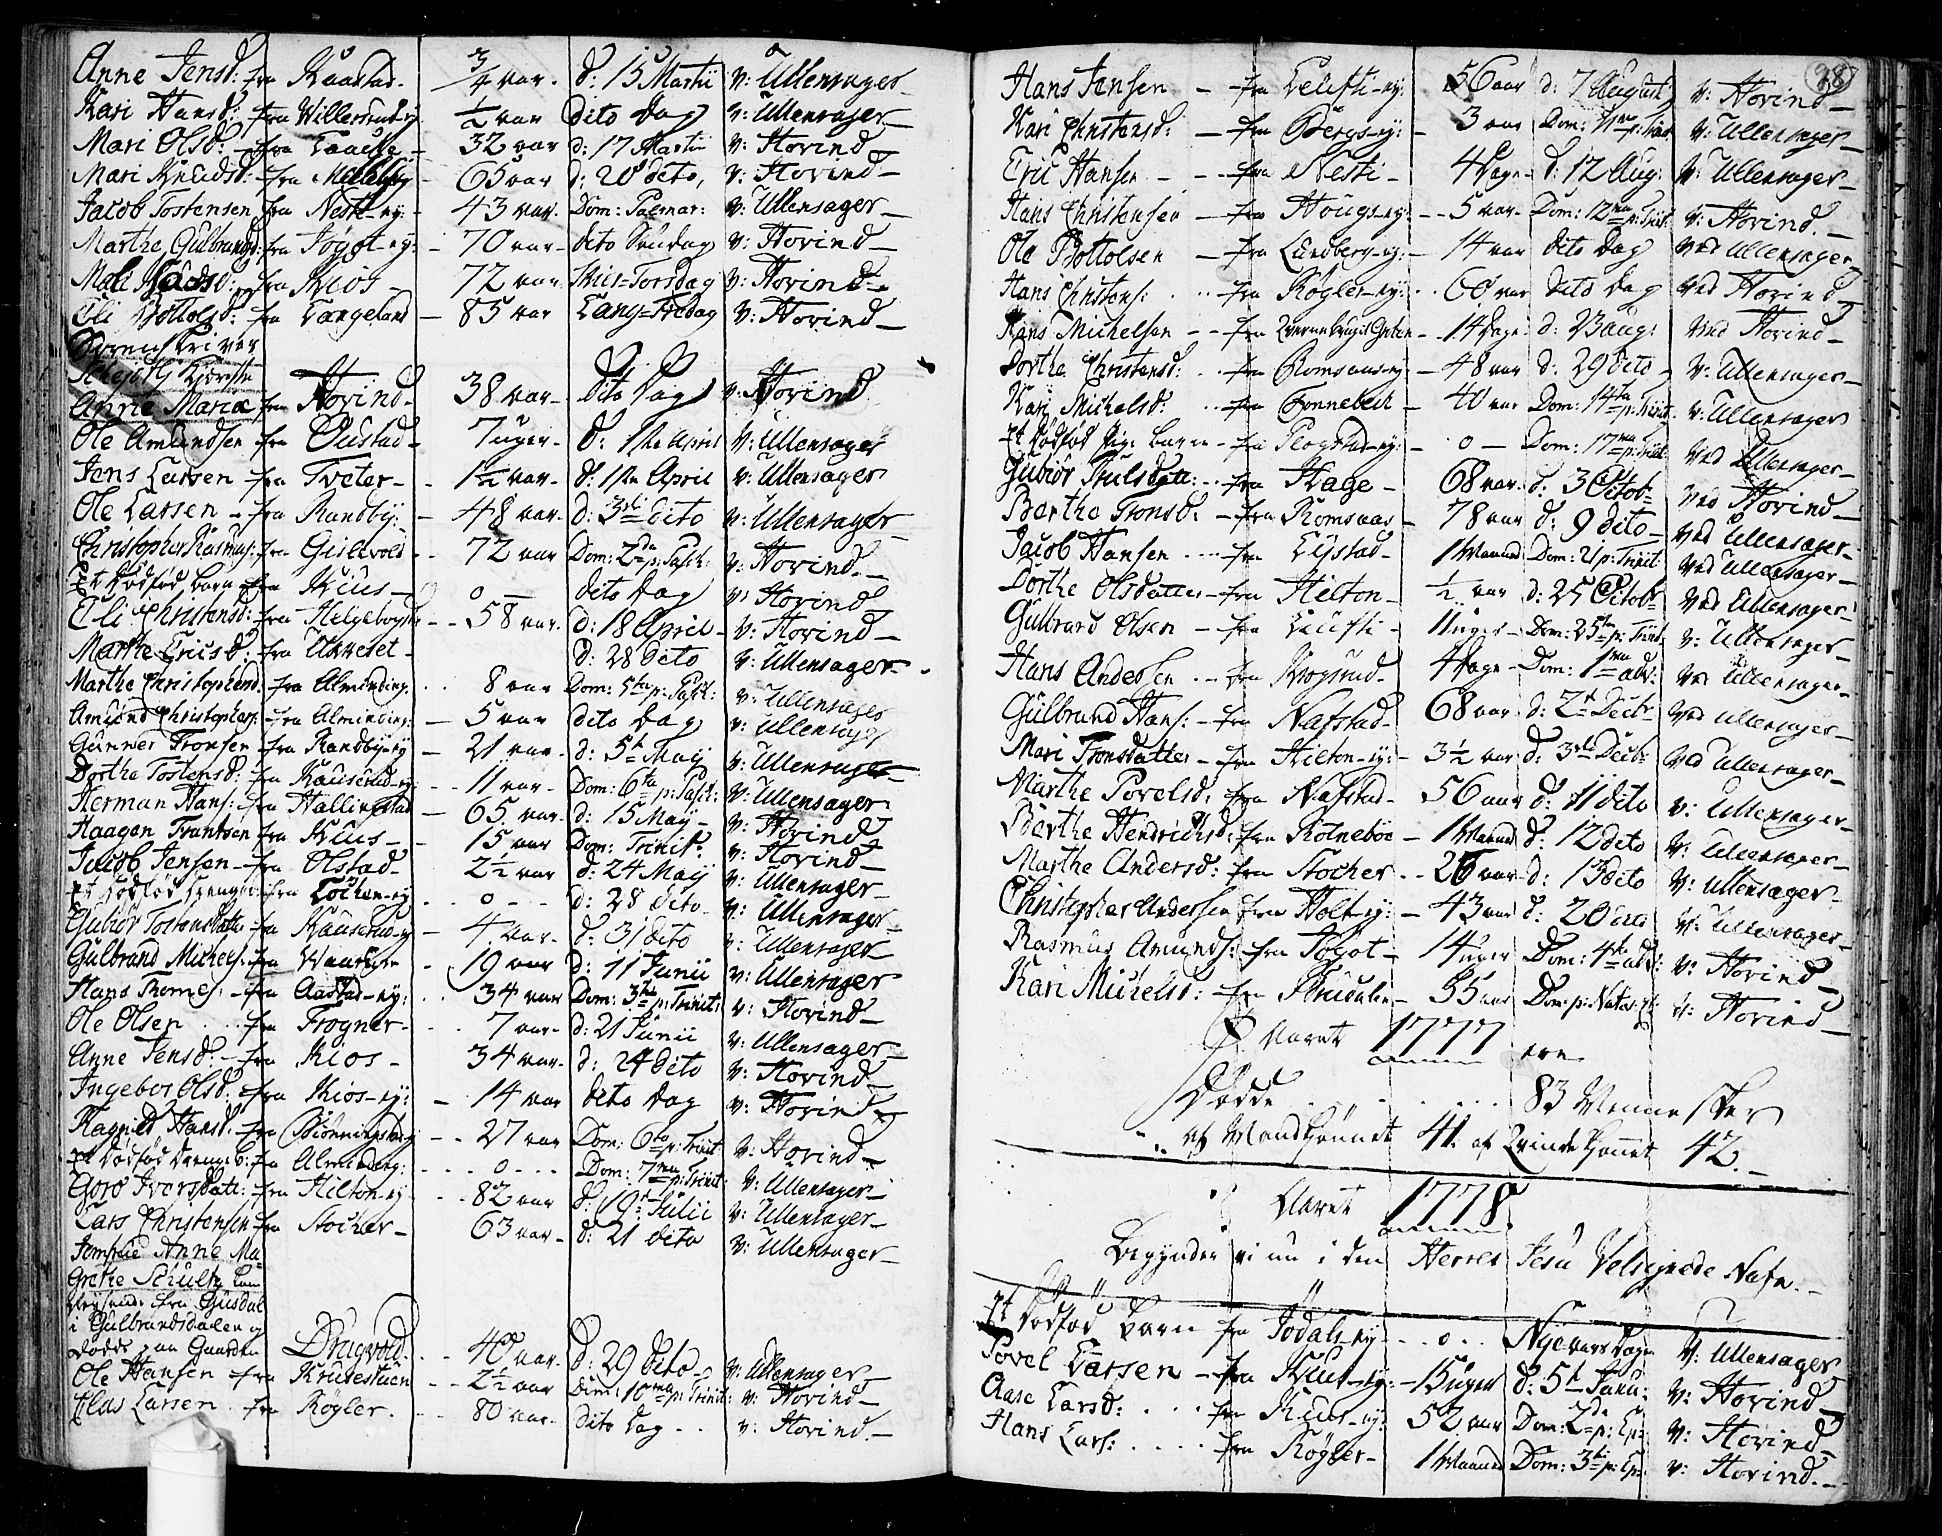 Anne Jensd: fra Kaastad - 3/4 aar - d: 15 Martii v: Ullensager
Kari Hansd: fra Willersrud-ej: 1/2 aar dito dag v: Ullensager
Mari Olsd: - fra - 32 aar d: 17 Martii v: Hovind
Mari Knudsd: fra - 65 aar d: 20 dito, v: Hovind
Jacob Tostensen fra Nesti-ej: - 43 aar - Dom: Palmar: v: Ullensager
Marthe Gulbrands: fra Jøgot-ej: - 70 aar - dito Søndag v: Hovind
Mali fra Kios - 72 aar Skiertorsdag v: Hovind
Eli Bottolsd: fra Langeland - 85 aar Lang-Fredag v: Hovind
Sorenskriver
Kiereste
Anne Maria fra Hovind - 38 aar - dito Dag v: Hovind
Ole Amundsen fra - 7 uger - d: 1ste April v: Ullensager
Jens Larsen - fra Tveter - 1 1/2 aar - d: 1ste April v: Ullensager
Ole Larsen - fra Randby: - 48 aar - d: 3die dito v: Ullensager
Christopher Rasmus: fra Gislevold - 72 aar Dom: 2da p: Pasch: v: Hovind
Et dødfød barn fra Kius - 0 - dito Dag v: Hovind
Eli Christensd: fra Helgeboystr - 58 aar - d: 18 April - v: Hovind
Marthe Ericsd: fra - d: 28 dito v: Ullensager
Marthe Christophersd: fra Alminding: 8 aar Dom: 5ta p: Pasch: v: Ullensager
Amund Christophers: fra Alminding: - 5 aar dito Dag v: Ullensager
Gunner Tronsen fra Randby-ej - 21 aar - d: 5t May v: Ullensager
Dorthe Tostensd: fra Kauserud-ej: - 11 aar - Dom: 6ta p: Pasch: v: Ullensager
Herman Hans: fra Hallingstad - 65 aar - d: 15 May - v: Hovind
Haagen Frantsen fra Kius - 15 aar Dom: Trinit: v: Hovind
Jacob Jensen - fra Olstad - 2 1/2 aar d: 24 May v: Ullensager
Et dødfød drenge: fra Løchen-ej - 0 - d: 28 dito v: Ullensager
Gubiør Tostensdatter fra Kauserud-ej - 4 aar - d: 31 dito v: Ullensager
Gulbrand Michels: fra - 19 aar d: 11 Junii v: Ullensager
Hans Thomes: - fra Aastad-ej: 34 aar Dom: 3tia p: Trinit: v: Hovind
Ole Olsen fra Frogner - 7 aar - d: 21 Junii v: Ullensager
Anne Jensd: - fra Kios - 34 aar - d: 24 dito v: Hovind
Ingebor Olsd: fra Kios-ej: - 14 aar dito Dag v: Hovind
Ragnild Hansd: fra Biønningstad - 27 aar Dom: 6ta p: Trinit v: Hovind
Et dødfød drengeb: fra Alminding: - 0 - Dom: 7ma p: Trinit: v: Ullensager
Goro Iversdatt: fra Hilton-ej - 82 aar d: 19t Julii v: Ullensager
Lars Christensen fra Stocher - 63 aar - d: 21 dito v: Ullensager
Jomfrue Anne Ma-
Grethe Schultz kom
reysende fra Gusdal
i Gulbrandsdalen og
døde paa Gaarden Dragvold 40 aar - d: 29 dito - v: Ullensager
Ole Hansen fra Krudestuen - 2 1/2 aar Dom: 10ma p: Trinit: v: Hovind
Elias Larsen fra Røgler - 80 aar - dito Dag v: Hovind
38
Hans Jensen - fra -ej: 56 aar d: 7 August v: Hovind
Kari Christensd: - fra Bergs-ej: 3 aar Dom: 11ma p: Trinit v: Ullensager
Eric Hansen - fra Nesti - 4 Dage - d: 12 Aug: v: Ullensager
Hans Christensen - fra Hougs-ej: - 5 aar - Dom: 12ma p: Trinit v: Hovind
Ole Bottolsen - fra Lundberg-ej: - 14 aar dito Dag ved Ullensager
Hans Christens: fra Røgler-ej: 60 aar dito Dag ved Hovind
Hans Michelsen - fra - 14 Dage d: 23 aug: ved Hovind
Dorthe Christensd: fra Romsaas-ej: - 48 aar d: 29 dito v: Ullensager
Kari Michelsd: fra Fonnebech - 40 aar Dom: 14ta p: Trinit v: Ullensager
Et dødfød pige barn - fra Flogstad-ej: - 0 - Dom: 17ma p: Trinit ved Ullensager
Gubiør Trulsdatt: fra Hage - 68 aar d: 3 Octob: ved Hovind
Berthe Tronsd: - fra Romsaas - 78 aar d: 9 dito ved Ullensager
Jacob Hansen fra Lystad - 1 Maaned Dom: 21 p: Trinit ved Ullensager
Dorthe Olsdatter fra Hilton - 1/2 aar d: 25 Octobr ved Ullensager
Gulbrand Olsen - fra - 11 uger - Dom: 25ta p: Trinit v: Ullensager
Hans Andersen fra Krogsrud - 4 Dage - Dom: 1ma adv: ved Ullensager
Gulbrand Hans: - fra Nafstad - 68 aar - d: 2t Decbr ved Ullensager
Mari Tronsdatter - fra Hilton-ej: - 3 1/2 aar d: 3die Decbr ved Ullensager
Marthe Povelsd: fra Nafstad - 56 aar d: 11 dito v: Ullensager
Berthe Hendrichsd: fra Rolneboe - 1 Maaned d: 12 dito v: Ullensager
Marthe Andersd: fra Stocher - 26 aar d: 13 dito v: Ullensager
Christopher Andersen fra Holt-ej: - 43 aar d: 20 dito v: Ullensager
Rasmus Amunds: fra Jøgot - 14 uger Dom: 4ta adv: v: Hovind
Kari Michelsd: fra - 35 aar Dom: p: Natav: v: Hovind
Aaret 1777 ere
Døde 83 Mennesker
af Mandkønnet 41. af Qvindekønnet 42.
Aaret 1778
Begynder vi nu i den Herres Jesu Velsignede Nafn.
Et Dødfød Barn fra Jødals-ej - 0 - Nye-aars Dagen v: Ullensager
Povel Larsen - fra Kius-ej: - 15 uger d: 5t Janu: v: Hovind
Aase Larsd: fra Kius-ej: 52 aar Dom: 2da p: Ep: v: Hovind
Hans Lars: fra Røgler - 1 Maaned Dom: 3tia p: Ep: v: Hovind.